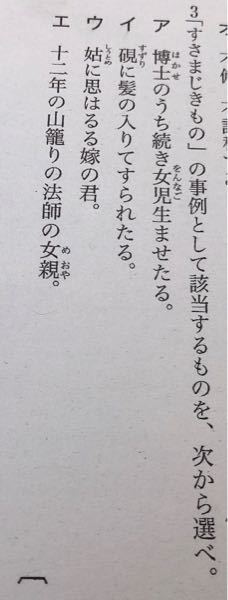 3「すさまじきもの」の事例として該当するものを、次から選べ。
ア 博士のうち続き女児生ませたる。
イ 硯に髪の入りてすられたる。
ウ 姑に思はるる嫁の君。
エ 十二年の山籠りの法師の女親。